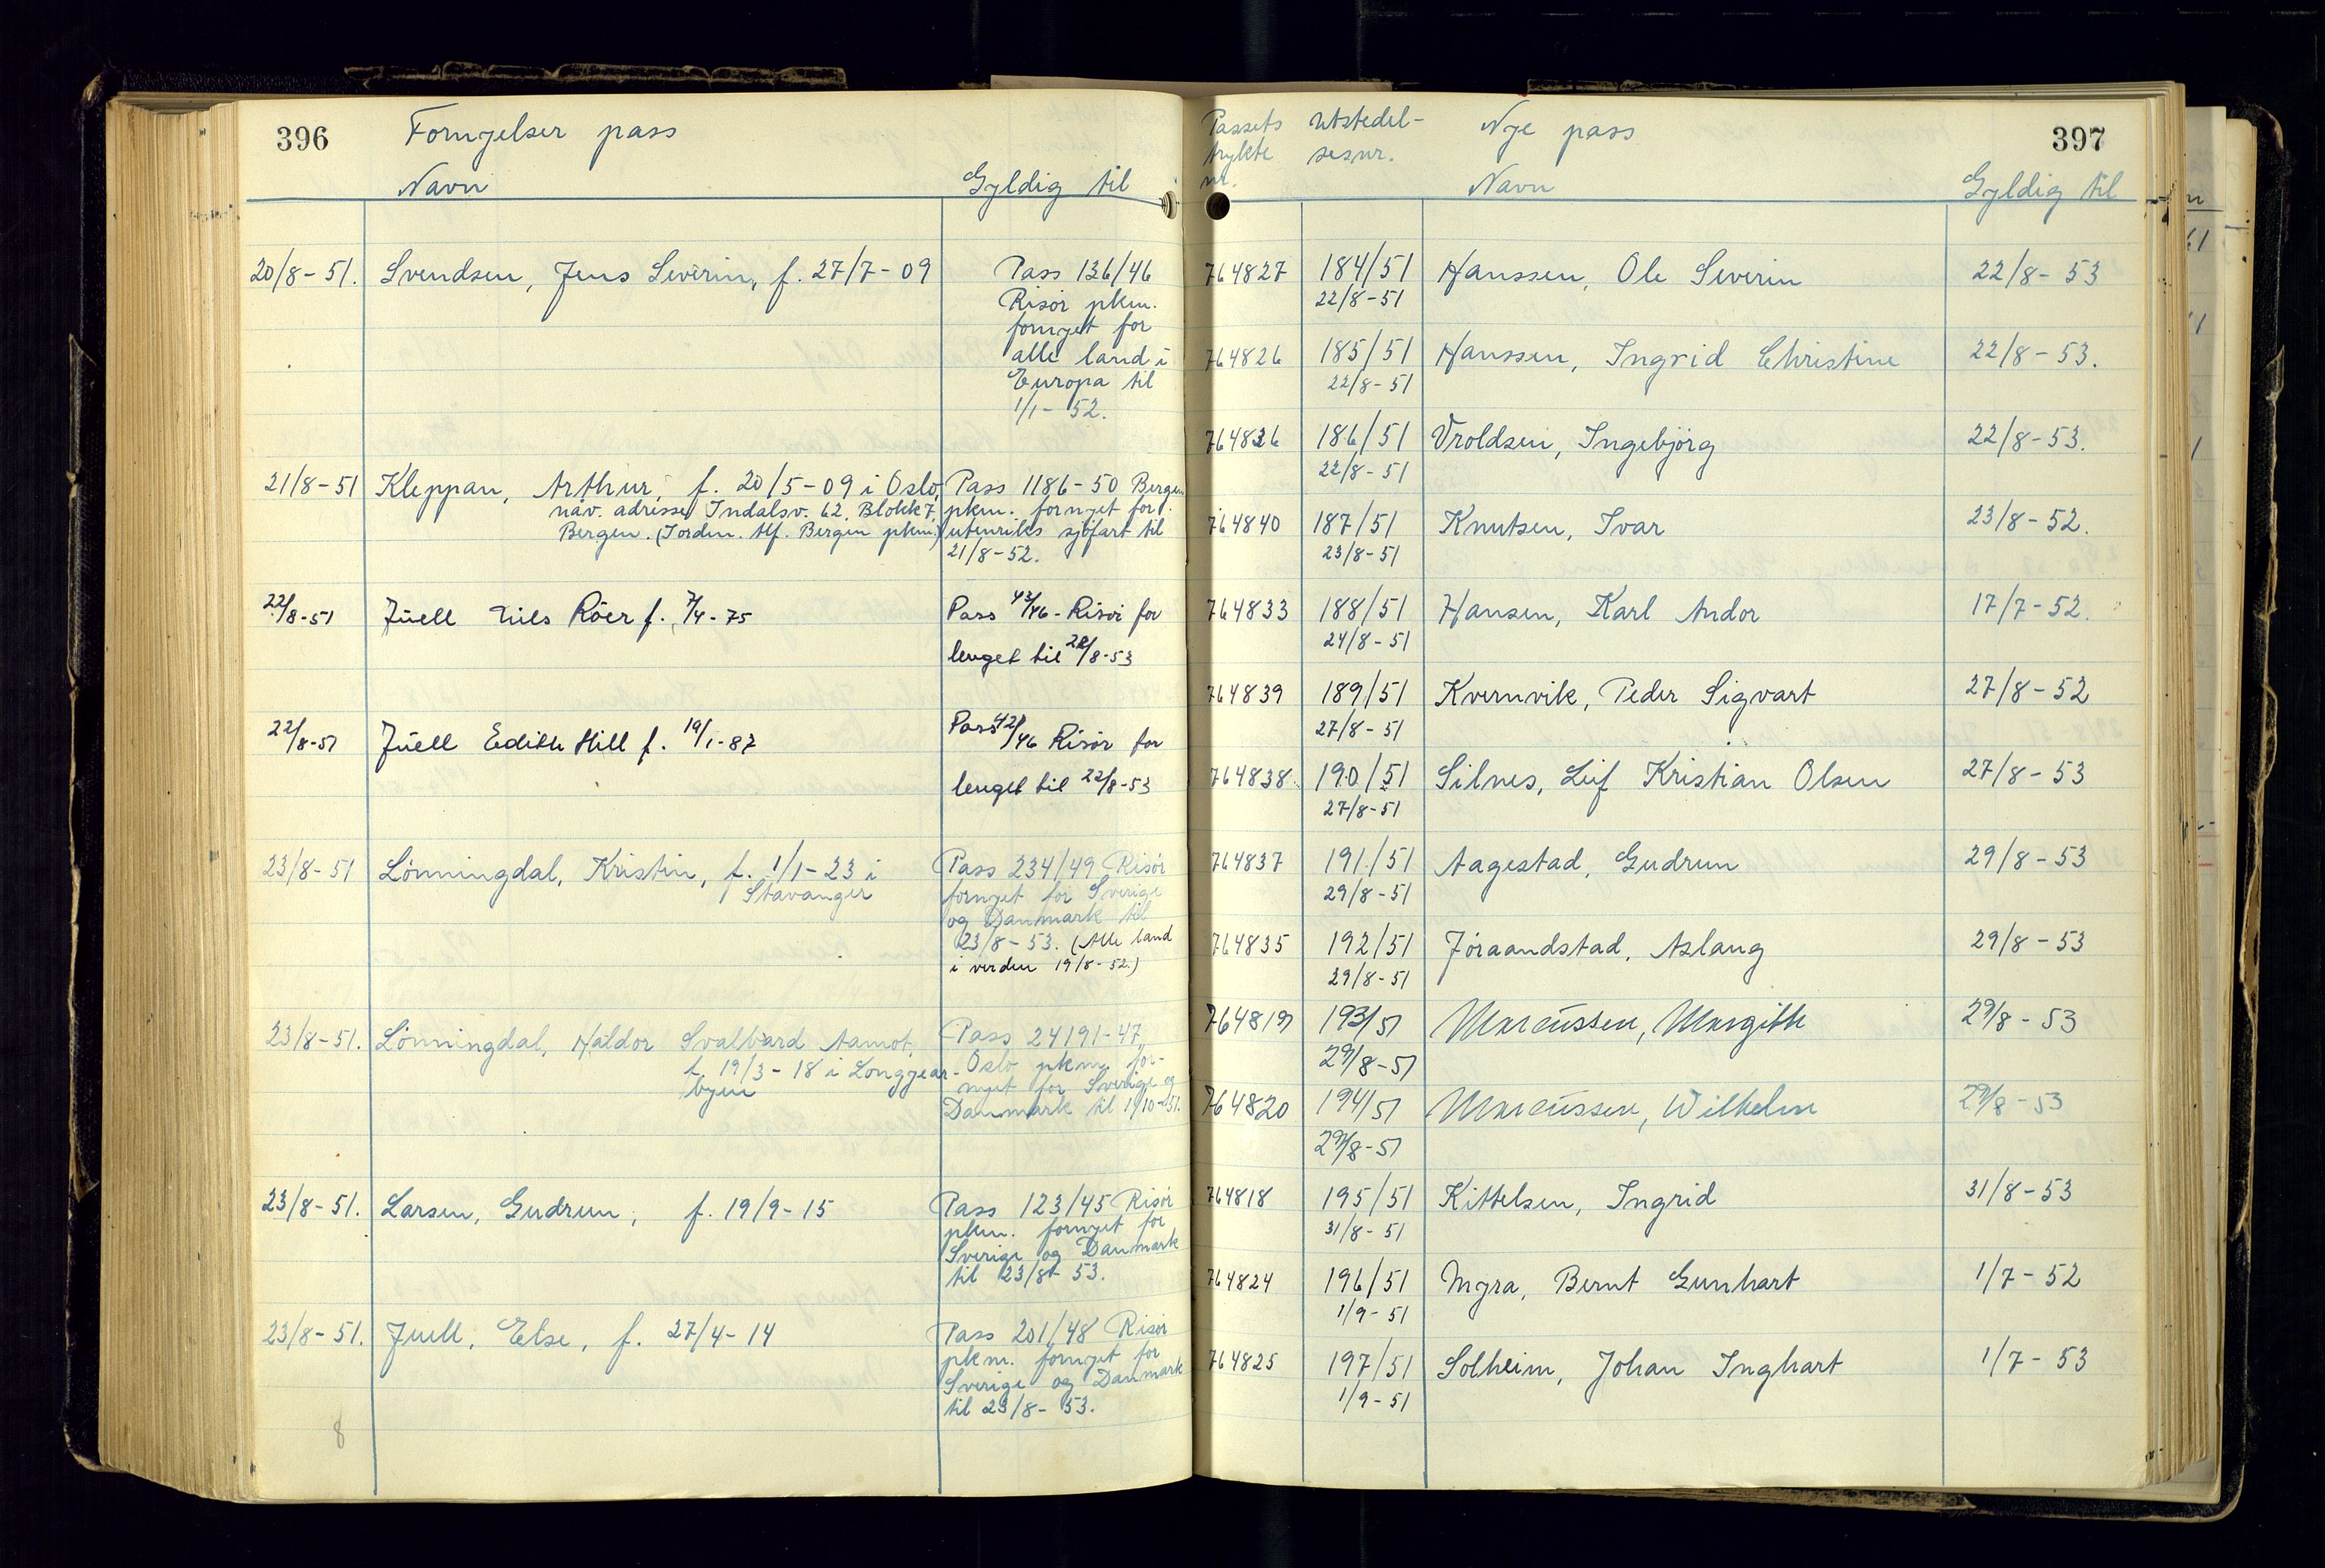 396
Fornyelser pass
Navn
Gyldig til
20/8-51. Svendsen, Jens Severin, f. 27/7-09
Pass 136/46
Risör pkm.
fornyet for
alle land i
Europa til
1/1-52.
21/8-51 Kleppan, Arthur, f. 20/5-09 i Oslo,
nåv. adresse Indalsv. 62, Blokk 7,
Bergen. (Jordm. tlf. Bergen pkm.)
Pass 1186-50 Bergen
pkm. fornyet for
utenriks sjöfart til
21/8-52.
22/8-51 Juell Nils Röer f. 7/4-75
Pass 43/46-Risör for
lenget til 22/8-53
22/8-51 Juell Edith Hill f. 19/1-87
Pass 42/46 Risör for
lenget til 22/8-53
23/8-51 Lönningdal, Kristin, f. 1/1-23 i
Stavanger
Pass 234/49 Risör
fornyet for Sverige
og Danmark til
23/8-53. (Alle land
i verden 19/8-52.)
23/8-51. Lönningdal, Haldor Svalbard Aamot,
f. 19/3-18 i Longyear-
byen
Pass 24191-47,
Oslo pkm. for-
nyet for Sverige og
Danmark til 1/10-51.
23/8-51. Larsen, Gudrun, f. 19/9-15
Pass 123/45 Risör
pkm. fornyet for
Sverige og Danmark
til 23/8-53.
23/8-51. Juell, Else, f. 27/4-14
Pass 201/48 Risör
pkm. fornyet for
Sverige og Danmark
til 23/8-53.
8
397
Passets
trykte
nr.
Utstedel-
sesnr.
Nye pass
Navn
Gyldig til
764827 184/51 Hanssen, Ole Severin 22/8-53
22/8-51
764826 185/51 Hanssen, Ingrid Christine 22/8-53.
22/8-51
764836 186/51 Vroldsen, Ingebjörg 22/8-53.
22/8-51
764840 187/51 Knutsen, Ivar 23/8-52.
23/8-51
764833 188/51 Hansen, Karl Andor 17/7-52.
24/8-51
764839 189/51 Kvernvik, Peder Sigvart 27/8-52
27/8-51
764838 190/51 Silnes, Leif Kristian Olsen 27/8-53
27/8-51
764837 191/51 Aagestad, Gudrun 29/8-53
29/8-51
764835 192/51 Jöraandstad, Aslaug 29/8-53
29/8-51
764819 193/51 Marcussen, Margith 29/8-53
29/8-51
764820 194/51 Marcussen, Wilhelm 29/8-53
29/8-51
764818 195/51 Kittelsen, Ingrid 31/8-53
31/8-51
764824 196/51 Myra, Bernt Gunhart 1/7-52
1/9-51
764825 197/51 Solheim, Johan Inghart 1/7-53
1/9-51